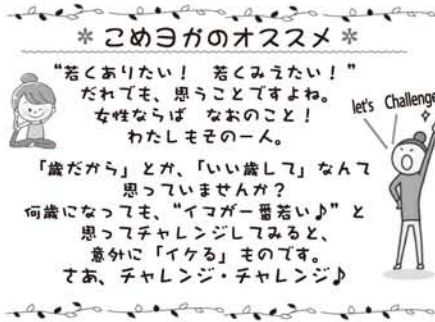 ＊こめヨガのオススメ＊
“若くありたい！　若くみえたい！”
だれでも、思うことですよね。
女性ならば　なおのこと！
わたしもその一人。
let's Challenge
「歳だから」とか、「いい歳して」なんて
思っていませんか？
何歳になっても、“イマガ一番若い♪”と
思ってチャレンジしてみると、
意外に「イケる」ものです。
さあ、チャレンジ・チャレンジ♪